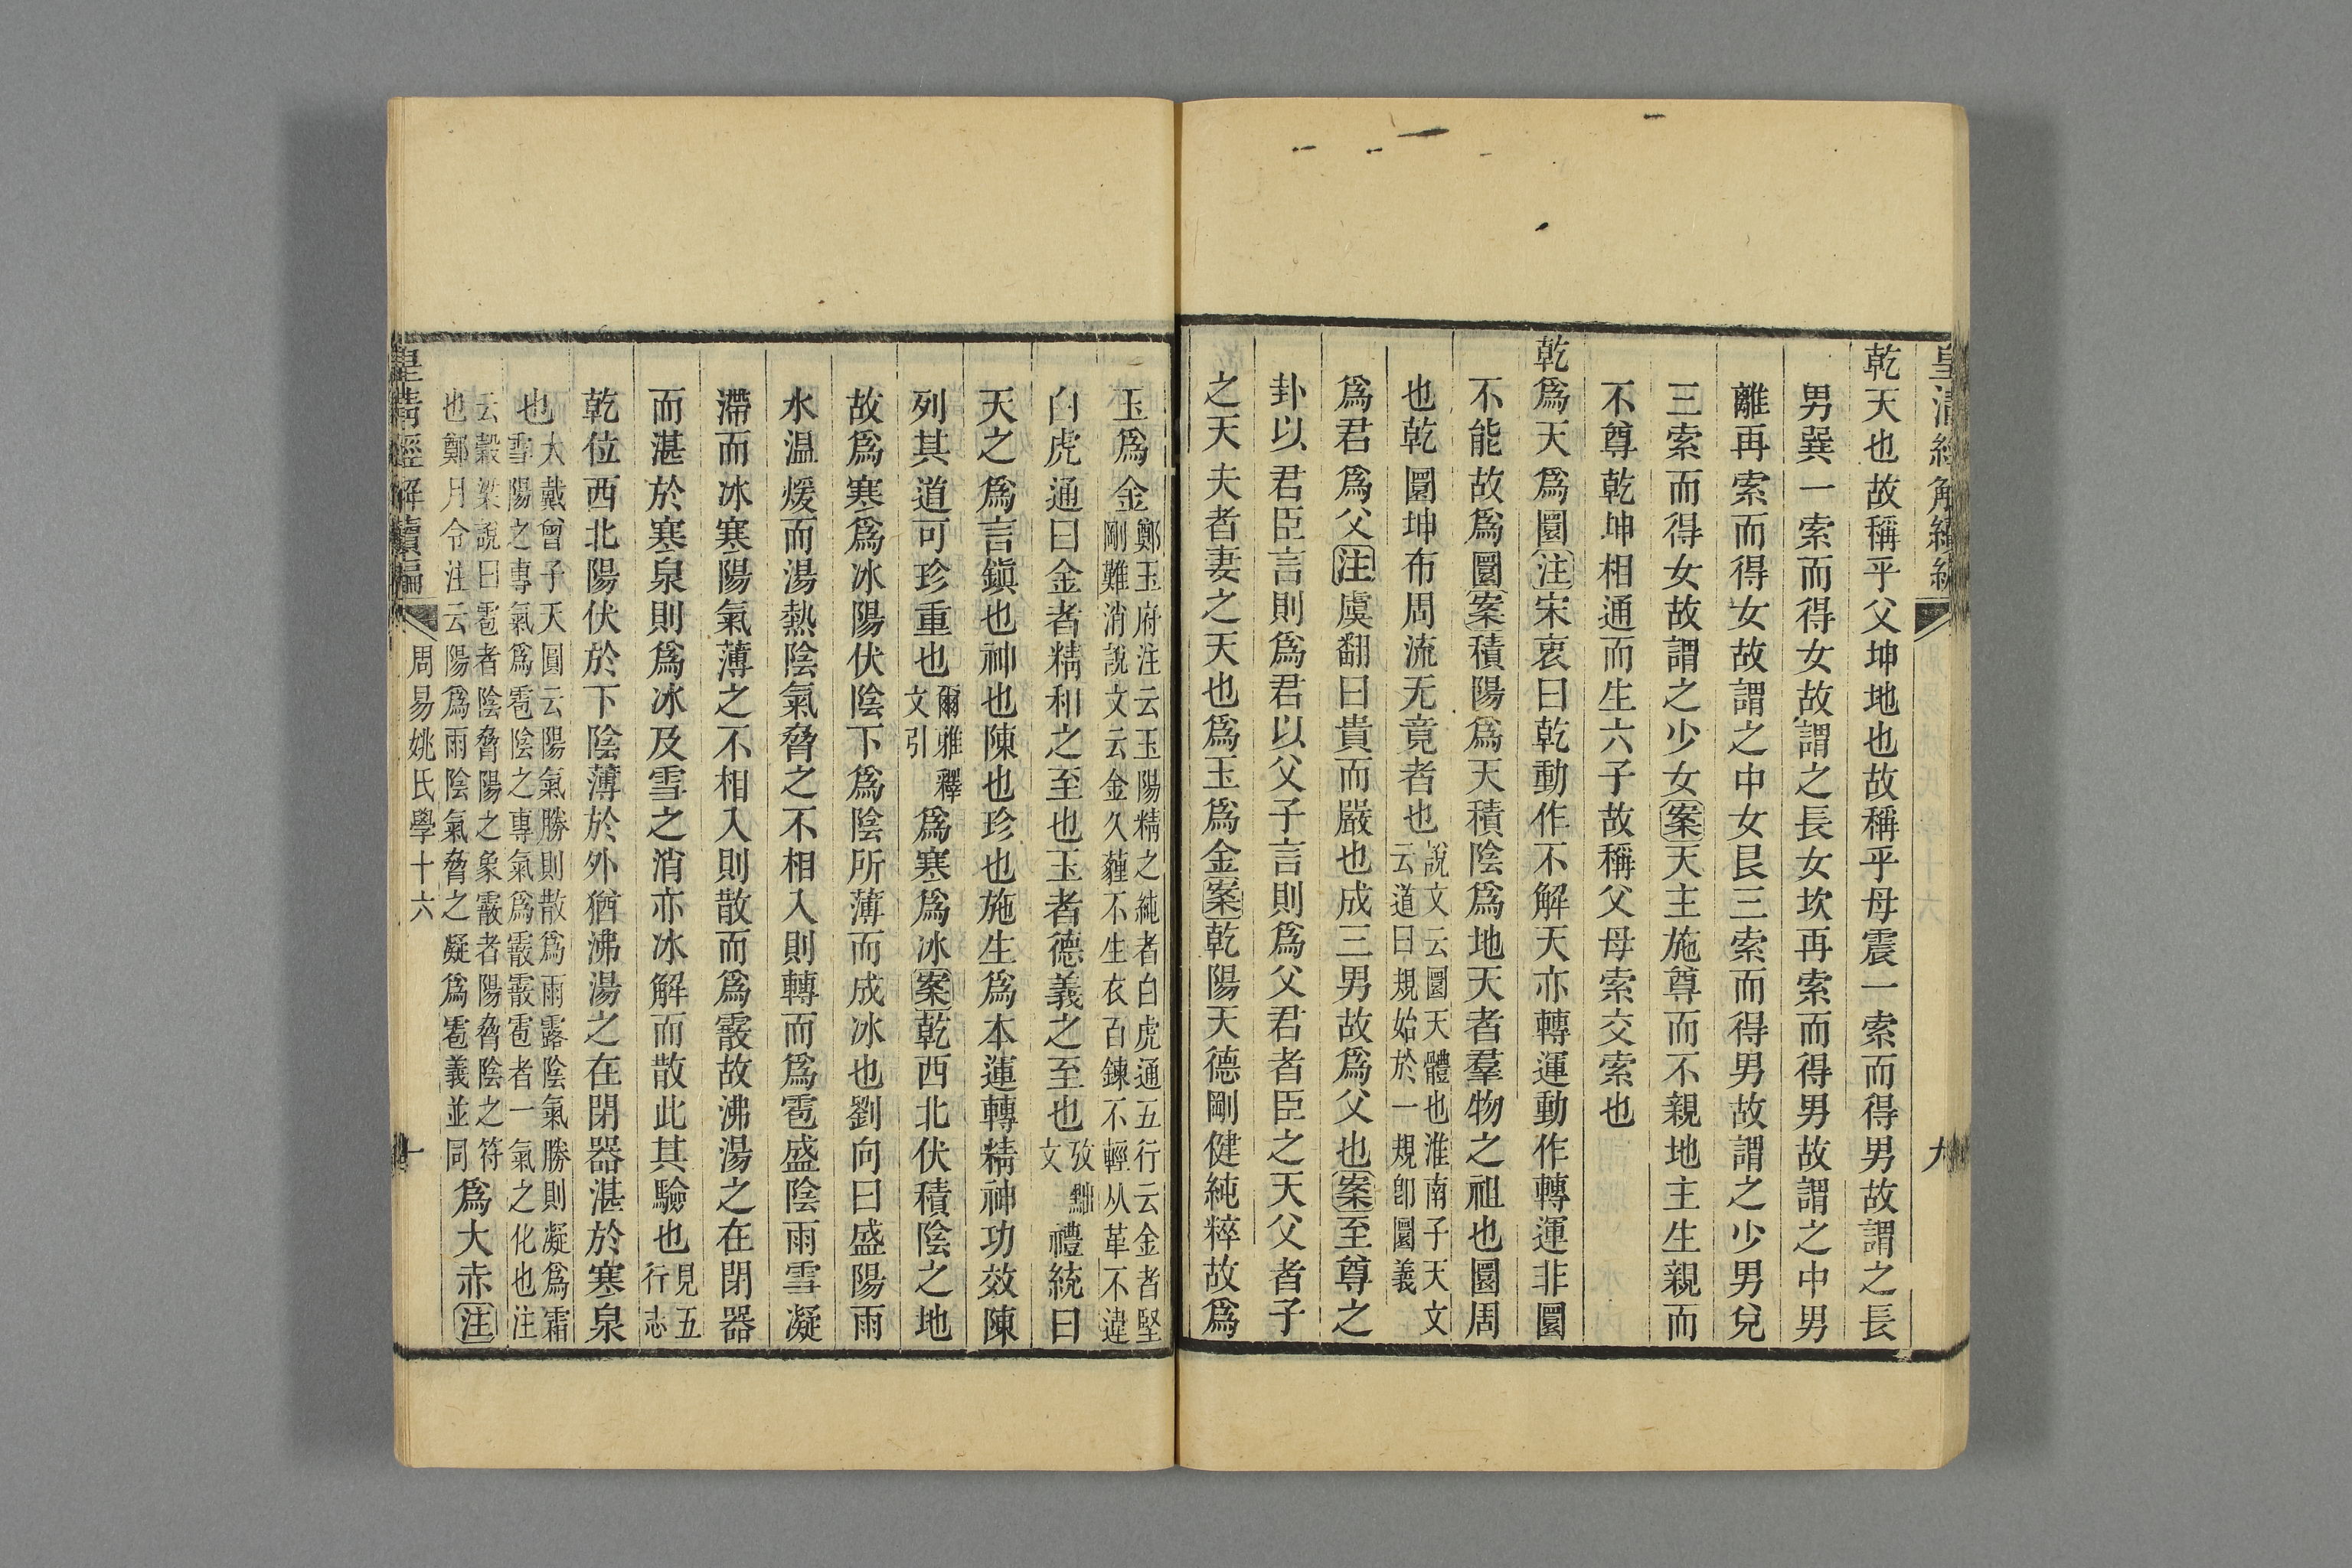 皇清經解續編
九
乾天也故稱乎父坤地也故稱乎母震一索而得男故謂之長
男巽一索而得女故謂之長女坎再索而得男故謂之中男
離再索而得女故謂之中女艮三索而得男故謂之少男兌
三索而得女故謂之少女案天主施尊而不親地主生親而
不尊乾坤相通而生六子故稱父母索交索也
乾爲天爲圜注宋衷曰乾動作不解天亦轉運動作轉運非圜
不能故爲圜案積陽爲天積陰爲地天者羣物之祖也圜周
也乾圜坤布周流无竟者也說文云圜天體也淮南子天文
云道曰規始於一規卽圜義
爲君爲父注虞翻曰貴而嚴也成三男故爲父也案至尊之
卦以君臣言則爲君以父子言則爲父君者臣之天父者子
之天夫者妻之天也爲玉爲金案乾陽天德剛健純粹故爲
玉爲金鄭玉府注云玉陽精之純者白虎通五行云金者堅
剛難消說文云金久薶不生衣百鍊不輕从革不違
白虎通曰金者精和之至也玉者德義之至也攷黜
文
禮統曰
天之爲言鎭也神也陳也珍也施生爲本運轉精神功效陳
列其道可珍重也爾雅釋
文引
爲寒爲冰案乾西北伏積陰之地
故爲寒爲冰陽伏陰下爲陰所薄而成冰也劉向曰盛陽雨
水溫煖而湯熱陰氣脅之不相入則轉而爲雹盛陰雨雪凝
滯而冰寒陽氣薄之不相入則散而爲霰故沸湯之在閉器
而湛於寒泉則爲冰及雪之消亦冰解而散此其驗也見五
行志
乾位西北陽伏於下陰薄於外猶沸湯之在閉器湛於寒泉
也大戴曾子天圓云陽氣勝則散爲雨露陰氣勝則凝爲霜
雪陽之專氣爲雹陰之專氣爲霰霰雹者一氣之化也注
云穀梁說曰雹者陰脅陽之象霰者陽脅陰之符
也鄭月令注云陽爲雨陰氣脅之凝爲雹義並同
爲大赤注
皇清經解續編
周易姚氏學十六
十